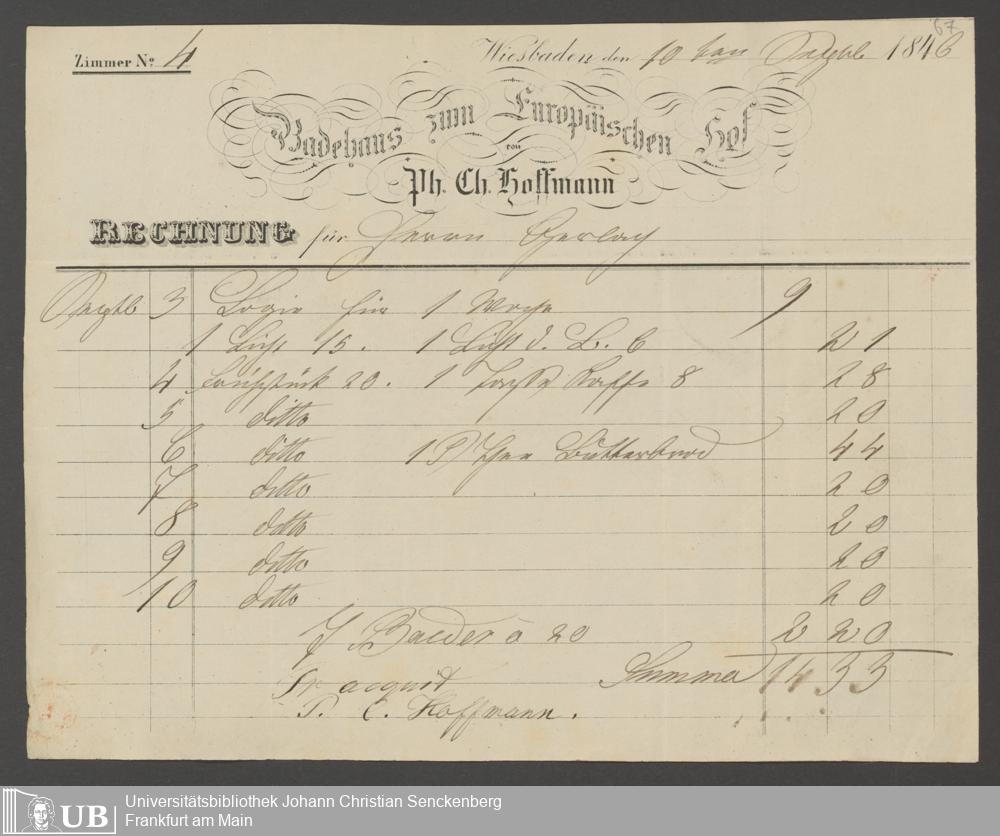 67
Zimmer No 4
Wiesbaden den 10 ten Septbr 1846
Badehaus zum Europäischen Hof
von
Ph. Ch. Hoffmann
RECHNUNG für Herrn Gerlach
Septb 3 Logis für 1 Woche 9
1 Licht 15. 1 Licht d. B. 6 21
4 Frühstück 20. 1 Tasse Kaffe 8 28
5 ditto 20
6 ditto 1 P Thee Butterbrod 44
7 ditto 20
8 ditto 20
9 ditto 20
10 ditto 20
7 Baeder a 20 2 20
Summa 14 33
pr acquit
P. C. Hoffmann.
UB Universitätsbibliothek Johann Christian Senckenberg
Frankfurt am Main